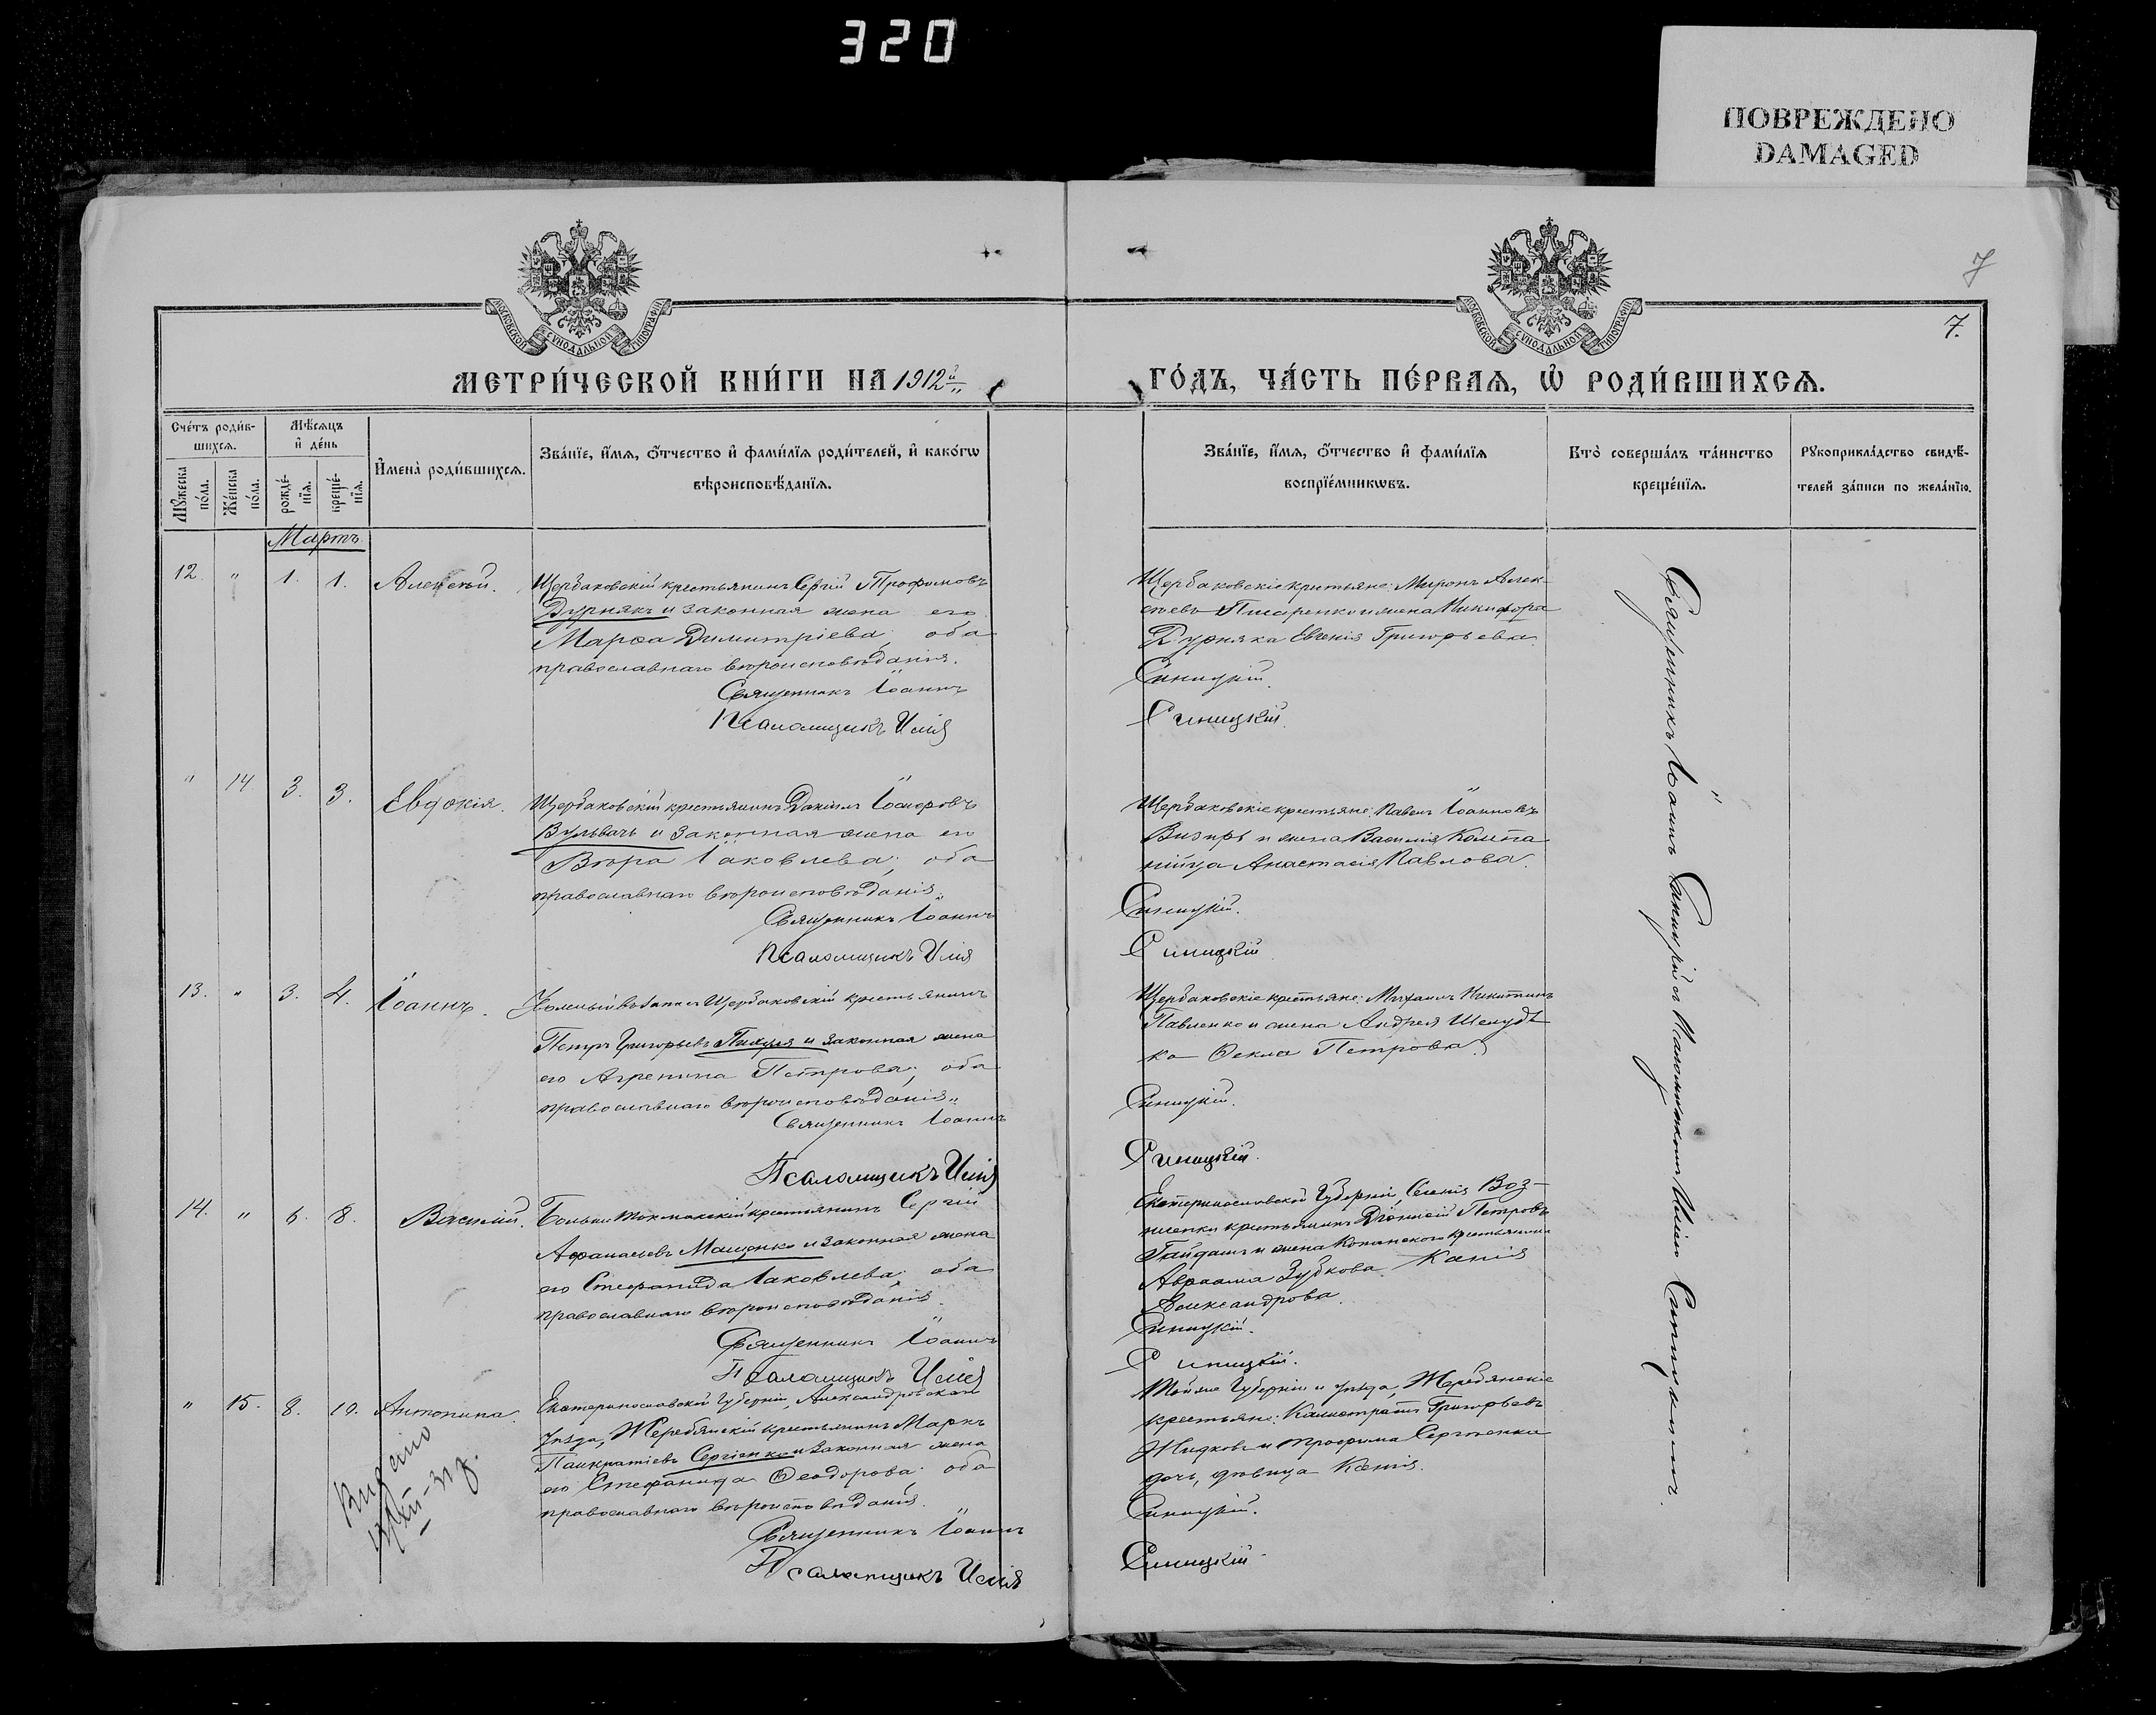 320
ПОВРЕЖДЕНО
DAMAGED
7
7.
МОСКОВСКОЙ СѴНОДАЛЬНОЙ ТИПОГРАФІИ
МОСКОВСКОЙ СѴНОДАЛЬНОЙ ТИПОГРАФІИ
МЕТРИ́ЧЕСКОЙ КНИ́ГИ НА 1912й
ГО́ДЪ, ЧА́СТЬ ПЕ́РВАѦ, Ѿ РОДИ́ВШИХСѦ.
Сче́тъ роди́в-
шихсѧ.
Мꙋжеска по́ла.
Же́нска по́ла.
Мѣ́сѧцъ
и҆ де́нь
рожде́-
нїѧ.
креще́-
нїѧ.
И҆мена̀ роди́вшихсѧ.
Зва́нїе, и҆́мѧ, ѻ҆́тчество и҆ фами́лїѧ роди́телей, и҆ како́гѡ
вѣроисповѣ́данїѧ.
Зва́нїе, и҆́мѧ, ѻ҆́тчество и҆ фами́лїѧ
воспрїе́мникѡвъ.
Кто̀ соверша́лъ та́инство
креще́нїѧ.
Рꙋкоприкла́дство свидѣ́-
телей за́писи по жела́нїю.
Мартъ
12. " 1. 1. Алексѣй.
Щербаковскій крестьянинъ Сергій Трофимовъ
Дурнякъ и законная жена его
Марѳа Димитріева, оба
православнаго вѣроисповѣданія.
Священникъ Іоаннъ
Псаломщикъ Илія
Щербаковскіе крестьяне: Миронъ Алек-
сѣевъ Писаренко и жена Никифора
Дурняка Евгенія Григорьева.
Синицкій.
Синицкій.
" 14 3. 3. Евдокія.
Щербаковскій крестьянинъ Даніилъ
и законная жена его
Вѣра Іаковлева, оба
православнаго вѣроисповѣданія.
Священникъ Іоаннъ
Псаломщикъ Илія
Щербаковскіе крестьяне: Павелъ Іоанновъ
Визирь и жена Василія Компа
нійца Анастасія Павлова.
Синицкій.
Синицкій
13. " 3. 4. Іоаннъ.
Щербаковскій крестьянинъ
Петръ Григорьевъ и законная жена
его Агрепина Петрова, оба
православнаго вѣроисповѣданія.
Священникъ Іоаннъ
Псаломщикъ Илія
Щербаковскіе крестьяне: Михаилъ Никитинъ
Павленко и жена Андрея Шелудь
ко Ѳекла Петрова.
Синицкій.
Синицкій.
14. " 6. 8. Василій.
Больше Токмакскій крестьянинъ Сергій
Афанасьевъ Мащенко и законная жена
его Стефанида Іаковлева, оба
православнаго вѣроисповѣданія.
Священникъ Іоаннъ
Псаломщикъ Илія
Екатеринославской Губерніи, Селенія Воз-
несенки крестьянинъ Діонисій Петровъ
Гайдашъ и жена Копанского крестьянина
Авраама Зубкова
Александрова.
Синицкій.
Синицкій.
" 15. 8. 10. Антонина.
Екатеринославской Губерніи, Александровскаго
уѣзда, Жеребянскій крестьянинъ Маркъ
Панкратіевъ Сергіенко и законная жена
его Стефанида Ѳеодорова, оба
православнаго вѣроисповѣданія.
Священникъ Іоаннъ
Псаломщикъ Илія
Тойже Губерніи и уѣзда, Жеребянскіе
крестьяне: Каллистратъ Григорьевъ
Жидковъ и Трофима Сергіенка
дочь, дѣвица Ксенія.
Синицкій.
Синицкій
Священникъ Іоаннъ Синицкій съ Псаломщикомъ Иліею Синицкимъ.